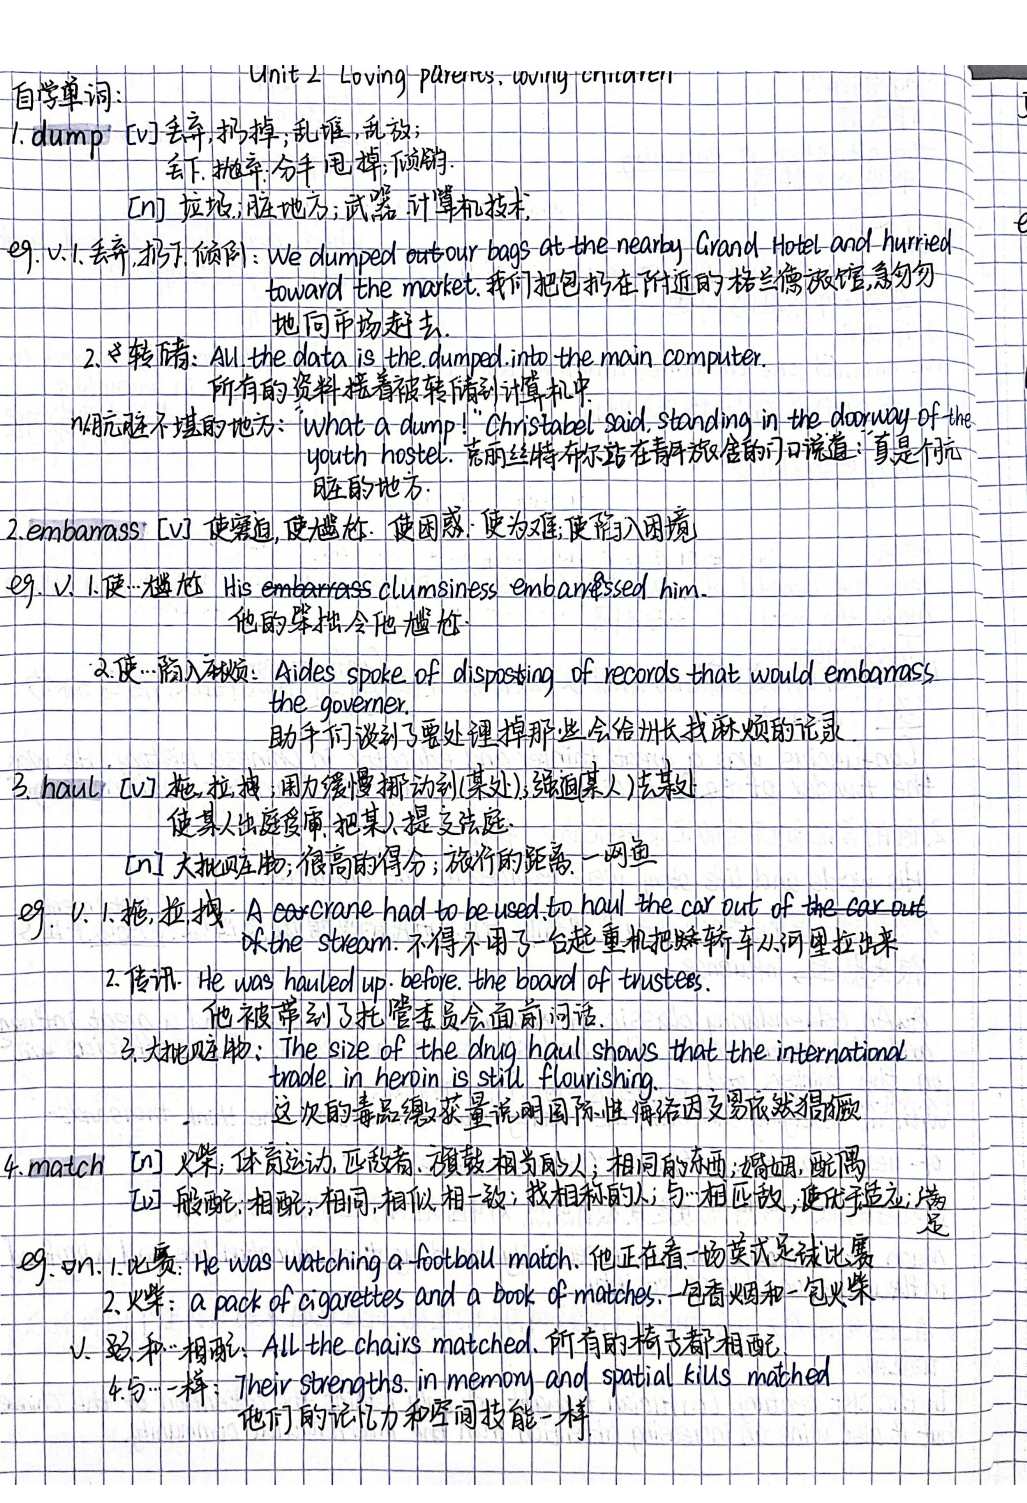 Unit 2 Loving parents, loving children
自学单词:
1. dump [v] 丢弃,扔掉;乱堆,乱放;
丢下.抛弃.分手.甩掉;倾销.
[n] 垃圾;脏地方;武器.计算机技术,
eg. v. 1. 丢弃,扔下,倾倒: We dumped out our bags at the nearby Grand Hotel and hurried
toward the market. 我们把包扔在附近的格兰德旅馆,急匆匆
地向市场赶去.
2. 转储: All the data is the dumped into the main computer.
所有的资料接着被转储到计算机中.
n. 肮脏不堪的地方: "What a dump!" Christabel said, standing in the doorway of the
youth hostel. 克丽丝特布尔站在青年旅舍的门口说道:真是个肮
脏的地方.
2. embarrass [v] 使窘迫,使尴尬. 使困惑;使为难;使陷入困境
eg. v. 1. 使…尴尬 His embarrass clumsiness embarrassed him.
他的笨拙令他尴尬.
2. 使…陷入麻烦: Aides spoke of disposting of records that would embarrass
the governer.
助手们谈到了要处理掉那些会给州长找麻烦的记录.
3. haul [v] 拖,拉,拽;用力缓慢挪动到(某处);强迫(某人)去某处
使某人出庭受审.把某人提交法庭.
[n] 大批赃物;很高的得分;旅行的距离.一网鱼
eg. v. 1. 拖,拉,拽. A car crane had to be used to haul the car out of the car out
of the stream. 不得不用了一台起重机把轿车从河里拉出来
2. 传讯. He was hauled up before the board of trustees.
他被带到了托管委员会面前问话.
3. 大批赃物: The size of the drug haul shows that the international
trade in heroin is still flourishing.
这次的毒品缴获量说明国际性海洛因交易依然猖獗
4. match [n] 火柴;体育运动,匹敌者.旗鼓相当的人;相同的东西;婚姻,配偶
[v] 般配;相配;相同,相似.相一致;找相称的人;与…相匹敌;使优于;适应;满
足
eg. n. 1. 比赛: He was watching a football match. 他正在看一场英式足球比赛
2. 火柴: a pack of cigarettes and a book of matches. 一包香烟和一包火柴
v. 3. 和…相配: All the chairs matched. 所有的椅子都相配.
4. 与…一样: Their strengths in memory and spatial kills matched
他们的记忆力和空间技能一样.